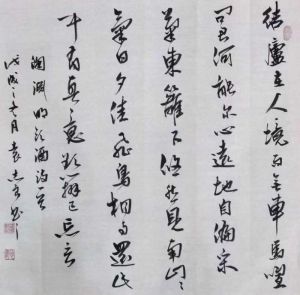 结庐在人境而无车马喧
问君何能尔心远地自偏采
菊东篱下悠然见南山山
气日夕佳飞鸟相与还此
中有真意欲辩已忘言
陶渊明饮酒诗一首
戊戌之